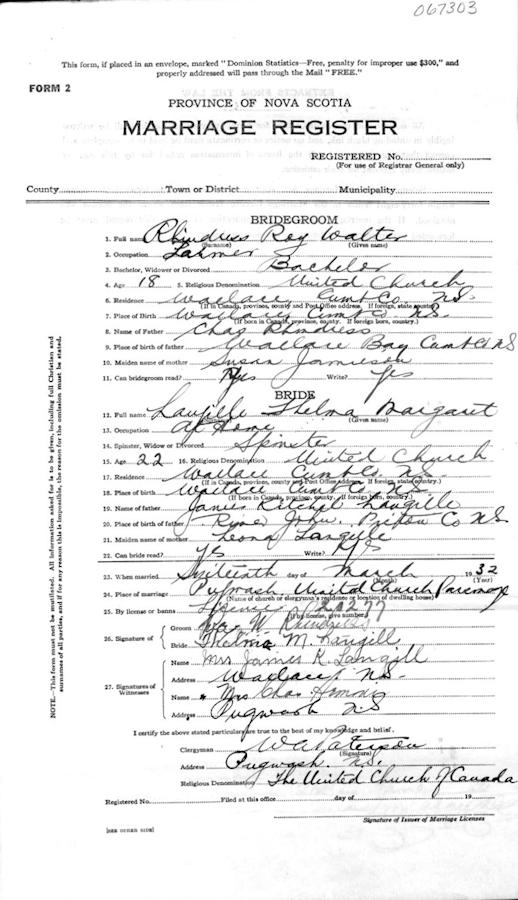 067303
This form, if placed in an envelope, marked "Dominion Statistics—Free, penalty for improper use $300," and
properly addressed will pass through the Mail "FREE."
FORM 2
PROVINCE OF NOVA SCOTIA
MARRIAGE REGISTER
REGISTERED No.
(For use of Registrar General only)
County Town or District Municipality
BRIDEGROOM
1. Full name Rhindress Roy Walter
(Surname) (Given name)
2. Occupation Farmer
3. Bachelor, Widower or Divorced Bachelor
4. Age 18 5. Religious Denomination United Church
6. Residence Wallace Cumb Co. N.S.
(If in Canada, province, county and Post Office address. If foreign, state country)
7. Place of Birth Wallace Cumb Co. N.S.
(If born in Canada, province, county. If foreign born, country.)
8. Name of Father Chas Rhindress
9. Place of birth of father Wallace Bay Cumb Co N.S
10. Maiden name of mother Susan Jamieson
11. Can bridegroom read? Yes Write? Yes
BRIDE
12. Full name Langille Thelma Margaret
(Given name)
13. Occupation At Home
14. Spinster, Widow or Divorced Spinster
15. Age 22 16. Religious Denomination United Church
17. Residence Wallace Cumb Co. N.S.
(If in Canada, province, county and Post Office address. If foreign, state country.)
18. Place of birth Wallace Cumb Co. N.S.
(If born in Canada, province, county. If foreign born, country.)
19. Name of father James Langille
20. Place of birth of father River John. Pictou Co N.S
21. Maiden name of mother Leona Langille
22. Can bride read? Yes Write? Yes
23. When married Sixteenth day of March 1932
(Month) (Year)
24. Place of marriage Pugwash United Church Parsonage
(Name of church or clergyman's residence or location of dwelling house)
25. By license or banns License 21277
(If by license, give number)
26. Signature of Groom W
Bride Thelma M. Langill
27. Signatures of Witnesses
Name Mrs James R. Langill
Address Wallace N.S.
Name Mrs Chas
Address Pugwash N.S
I certify the above stated particulars are true to the best of my knowledge and belief.
Clergyman W A Paterson
(Signature)
Address Pugwash. N.S.
Religious Denomination The United Church of Canada
Registered No. Filed at this office day of 19
Signature of Issuer of Marriage Licenses
NOTE.—This form must not be mutilated. All information asked for is to be given, including full Christian and
surnames of all parties, and if for any reason this is impossible, the reason for the omission must be stated.